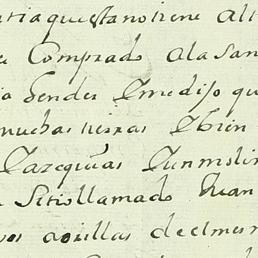 questa no tiene Alt
Comprado Ala San
bender Ymedijo qu
muchas tierras Ybien
Yazequias Yun molin
Sitio llamado Juan
orillas de el mesm